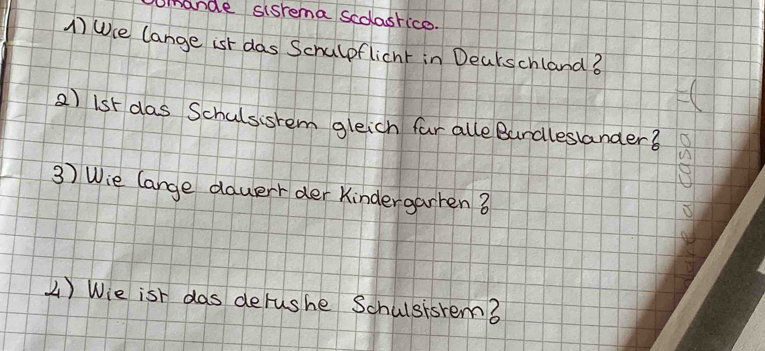 Domande sistema scolastico.
1) Wie lange ist das Schulpflicht in Deutschland?
2) Ist das Schulsistem gleich für alle Bundleslander?
3) Wie lange dauert der Kindergarten?
4) Wie ist das detushe Schulsistem?
a casa =(